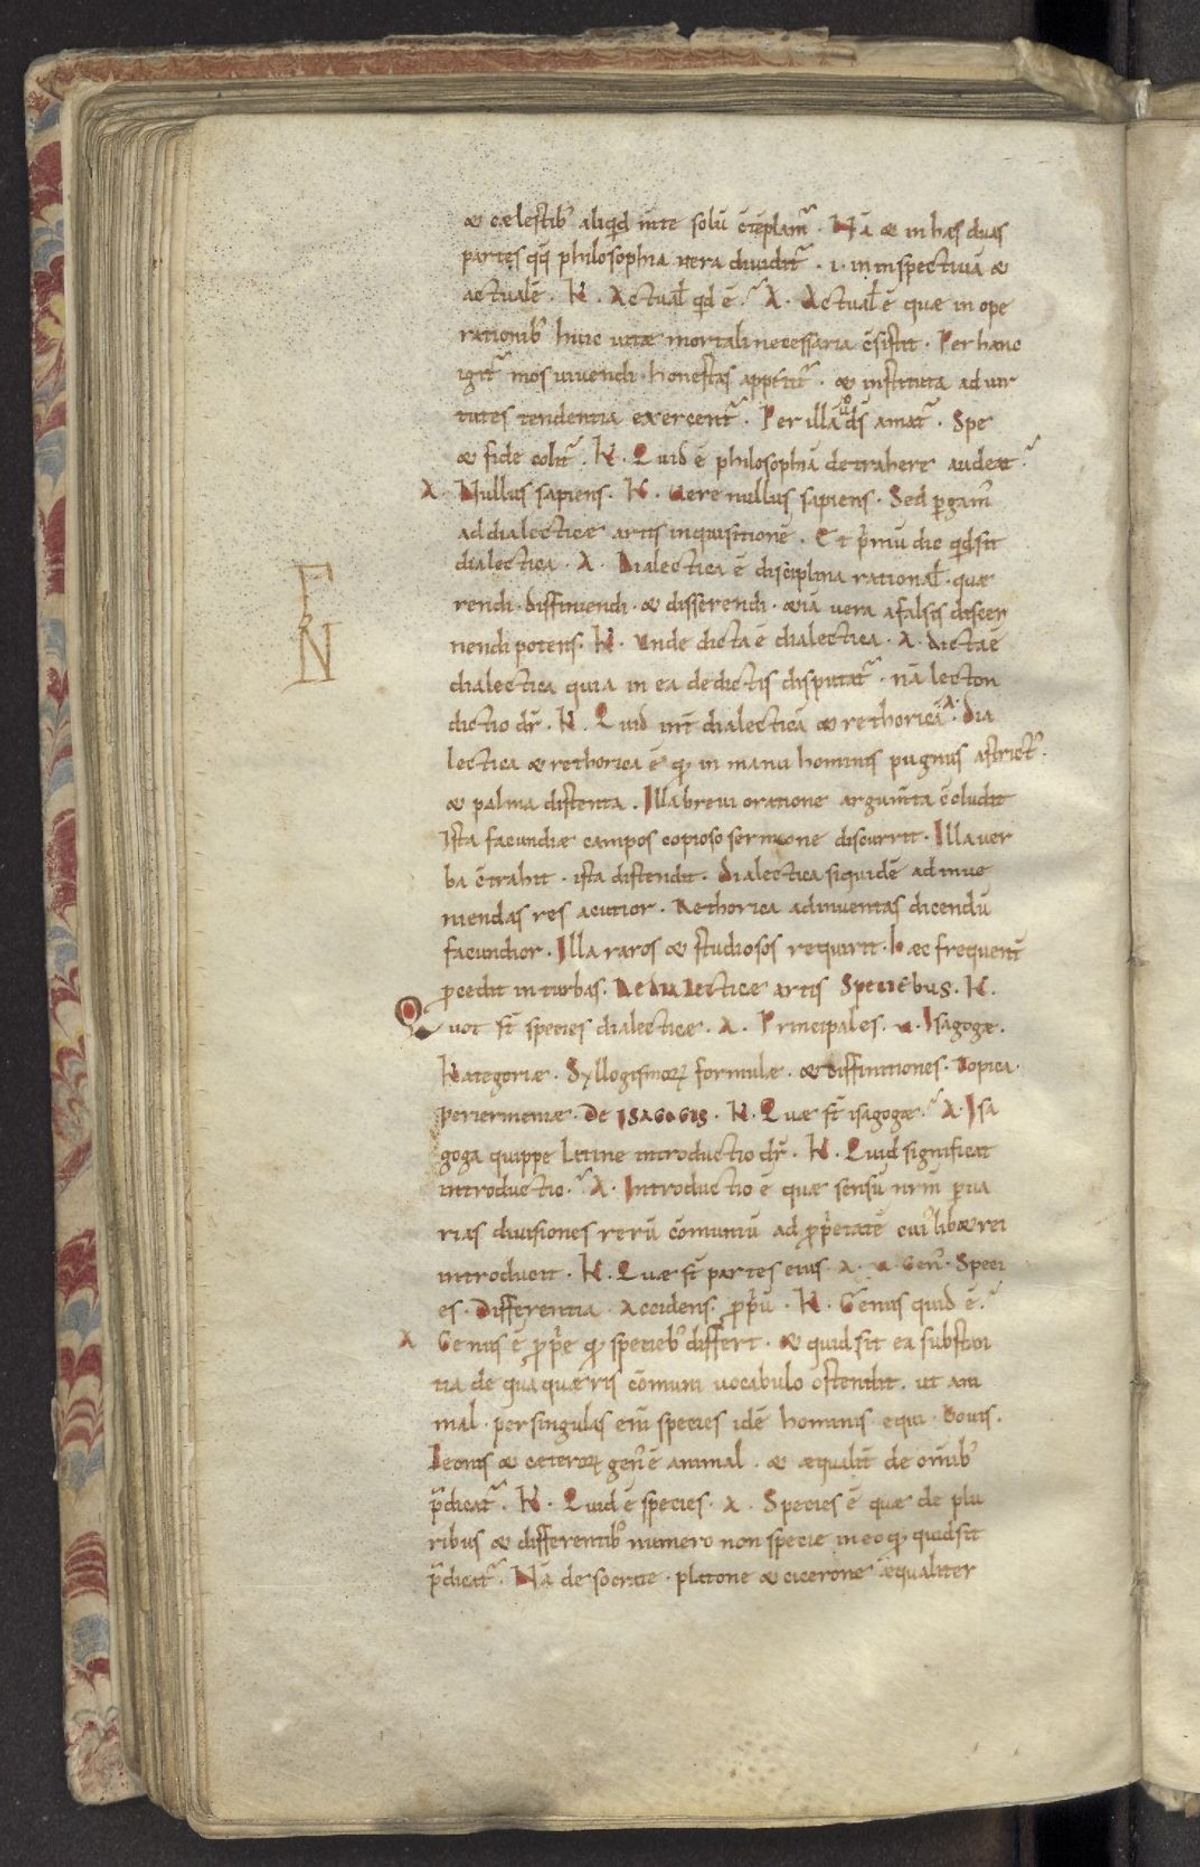 & cælestib; aliqđ m̄te solū c̄tēplam̃. Nā & in has duas
partes qq; philosophia vera diuidit̃ .i. in inspectiuā &
actualē. K. Actual̄ qđ ē? A. Actual̄ ē quæ in ope
rationib; huic uitæ mortali necessaria c̄sistit. Per hanc
igit̃ mos uiuendi honestas appetit̃. & instituta ad uir
tutes tendentia exercent̃. Per illā uo ds̄ amat̃. Spe
& fide colit̃. K. Quid ē philosophiā detrahere audeat?
A. Nullus sapiens. K. Vere nullus sapiens. Sed pgam;
ad dialecticæ artis inquisitionē. Et p̄mū dic qđ sit
dialectica. A. Dialectica ē disciplina rational̄. quæ
rendi. diffiniendi. & disserendi. &iā vera a falsis discer
nendi potens. K. Vnde dicta ē dialectica. A. dicta ē
dialectica quia in ea de dictis disputat̃. nā lecton
dictio dr̄. K. Quid int̄ dialecticā & rethoricā. A. Dia
lectica & rethorica ē qđ in manu hominis pugnus astrict;.
& palma distenta. Illa breui oratione argum̄ta c̄cludit
Ista facundiæ campos copioso sermone discurrit. Illa uer
ba c̄trahit. ista distendit. Dialectica siquidē ad inue
niendas res acutior. Rethorica ad inuentas dicendū
facundior. Illa raros & studiosos requirit. hæc frequent̄
pcedit in turbas. De dialecticæ artis speciebus. K.
Quot st̄ species dialecticæ. A. Principales. u. Isagogæ.
Kategoriæ. Syllogismorꝝ formulæ. & diffinitiones. Topica.
periermeniæ. De isagogis. K. Quæ st̄ isagogæ? A. Isa
goga quippe latine introductio dr̄. K. Quid significat
introductio? A. Introductio ē quæ sensū nr̄m p ua
rias diuisiones rerū cōmuniū ad pp̄etatē cui;lib& rei
introducit. K. Quæ st̄ partes eius. A. u. Gen;. Speci
es. Differentia. Accidens. pp̄ū. K. Genus quid ē?
A Genus ē pp̄e qđ specieb; differt. & quid sit ea substan
tia de qua quæris cōmuni uocabulo ostendit. ut ani
mal. per singulas eni̅ species idē hominis equi. bouis.
leonis & ceterorꝝ gen; ē animal. & æqualit̄ de om̄ib;
p̄dicat̃. K. Quid ē species. A. Species ē quæ de plu
ribus & differentib; numero non specie in eo qđ quid sit
p̄dicat̃. Nā de socrate. platone & cicerone æqualiter